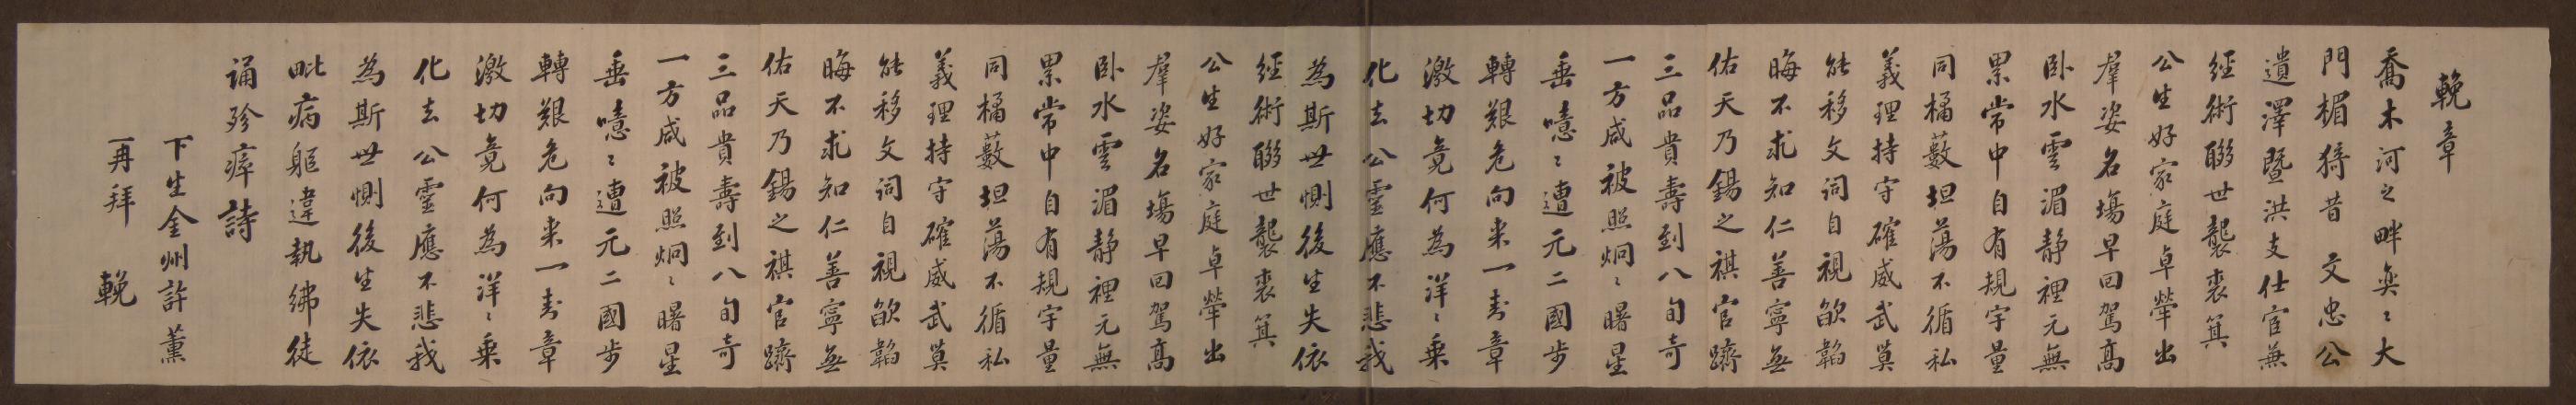 輓章
喬木河之畔奕〻大
門楣猗昔 文忠公
遺澤暨洪支仕宦兼
經術聯世襲裘箕
公生好家庭卓犖出
羣姿名場早回駕高
卧水雲湄静裡元無
累常中自有規宇量
同橘薮坦蕩不循私
義理持守確威武莫
能移文詞自視欿韜
晦不求知仁善寧無
佑天乃錫之祺官躋
三品貴壽到八旬奇
一方咸被照炯〻曙星
垂噫〻遭元二國步
轉艱危向来一封章
激切竟何為洋〻乗
化去公靈應不悲我
為斯世惻後生失依
經術聯世襲裘箕
公生好家庭卓犖出
羣姿名場早回駕高
卧水雲湄静裡元無
累常中自有規宇量
同橘薮坦蕩不循私
義理持守確威武莫
能移文詞自視欿韜
晦不求知仁善寧無
佑天乃錫之祺官躋
三品貴壽到八旬奇
一方咸被照炯〻曙星
垂噫〻遭元二國步
轉艱危向来一封章
激切竟何為洋〻乗
化去公靈應不悲我
為斯世惻後生失依
毗病軀違執紼徒
誦殄瘁詩
下生金州許薰
再拜 輓